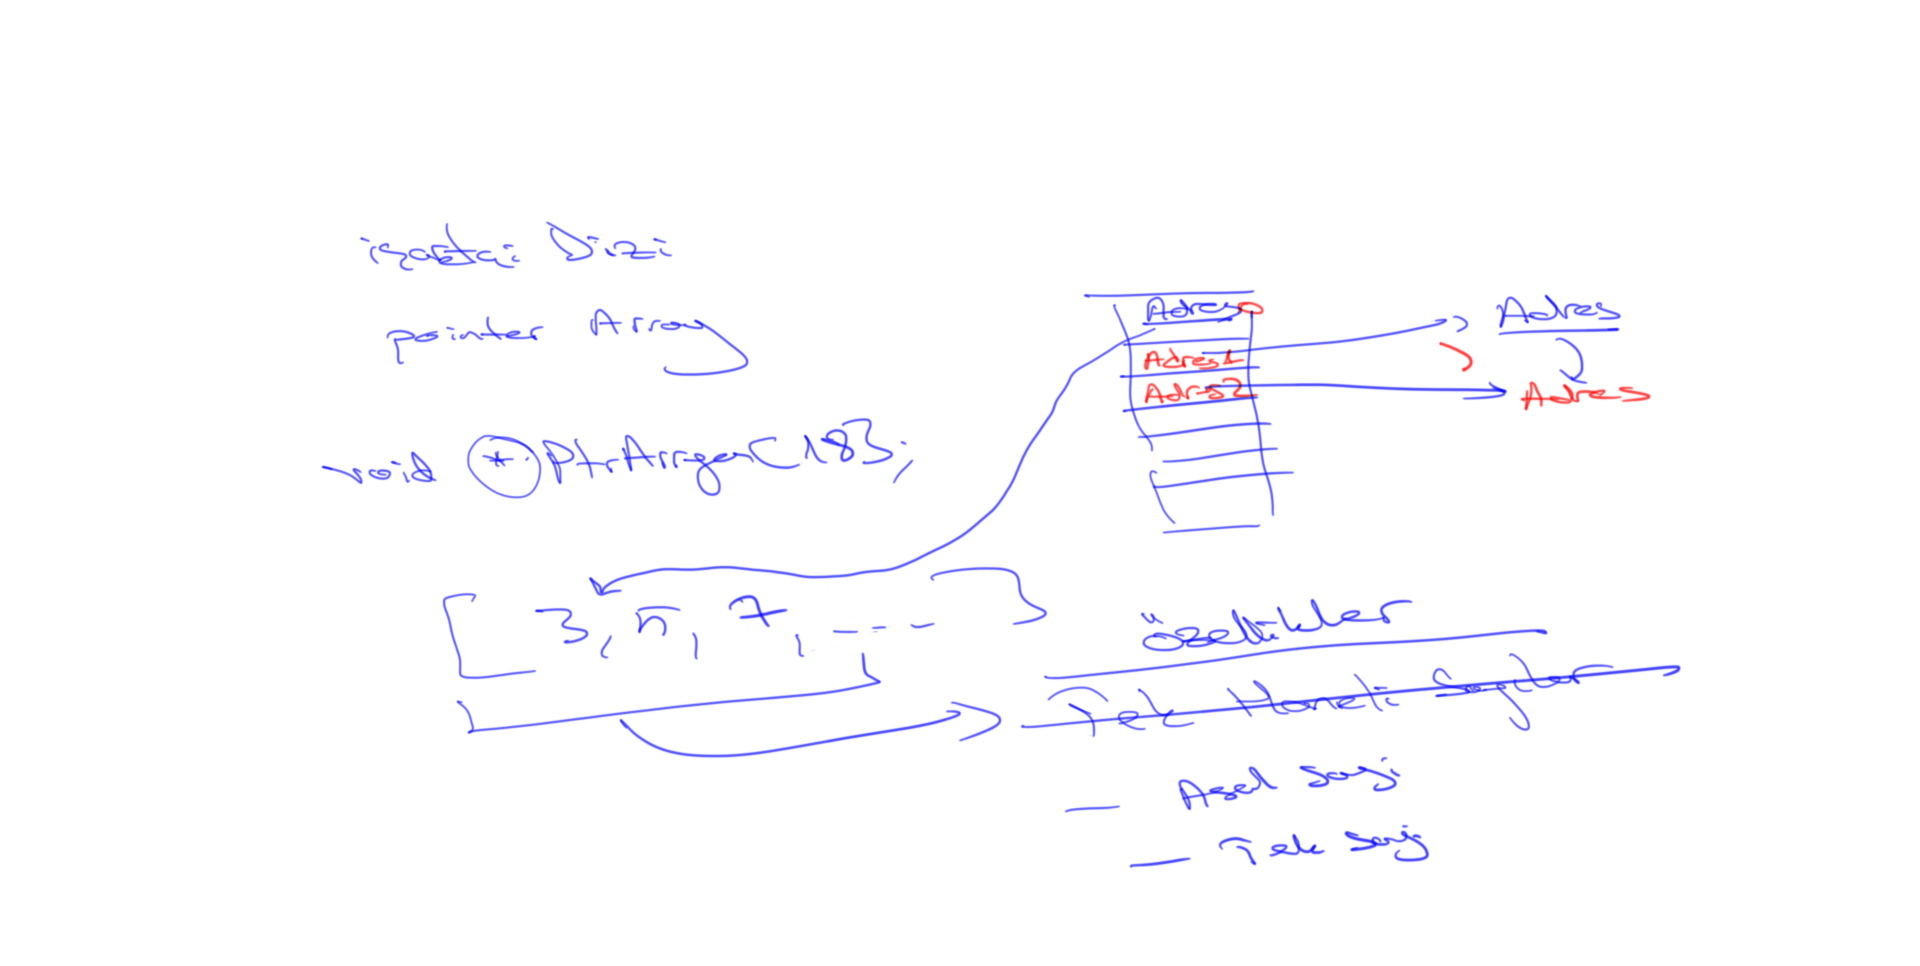 işaretçi Dizi
pointer Array
void * PtrArray[18];
Adres0
Adres1
Adres2
Adres
Adres
[3, 5, 7, ---]
özellikler
Tek Haneli Sayılar
— Asal Sayı
— Tek Sayı